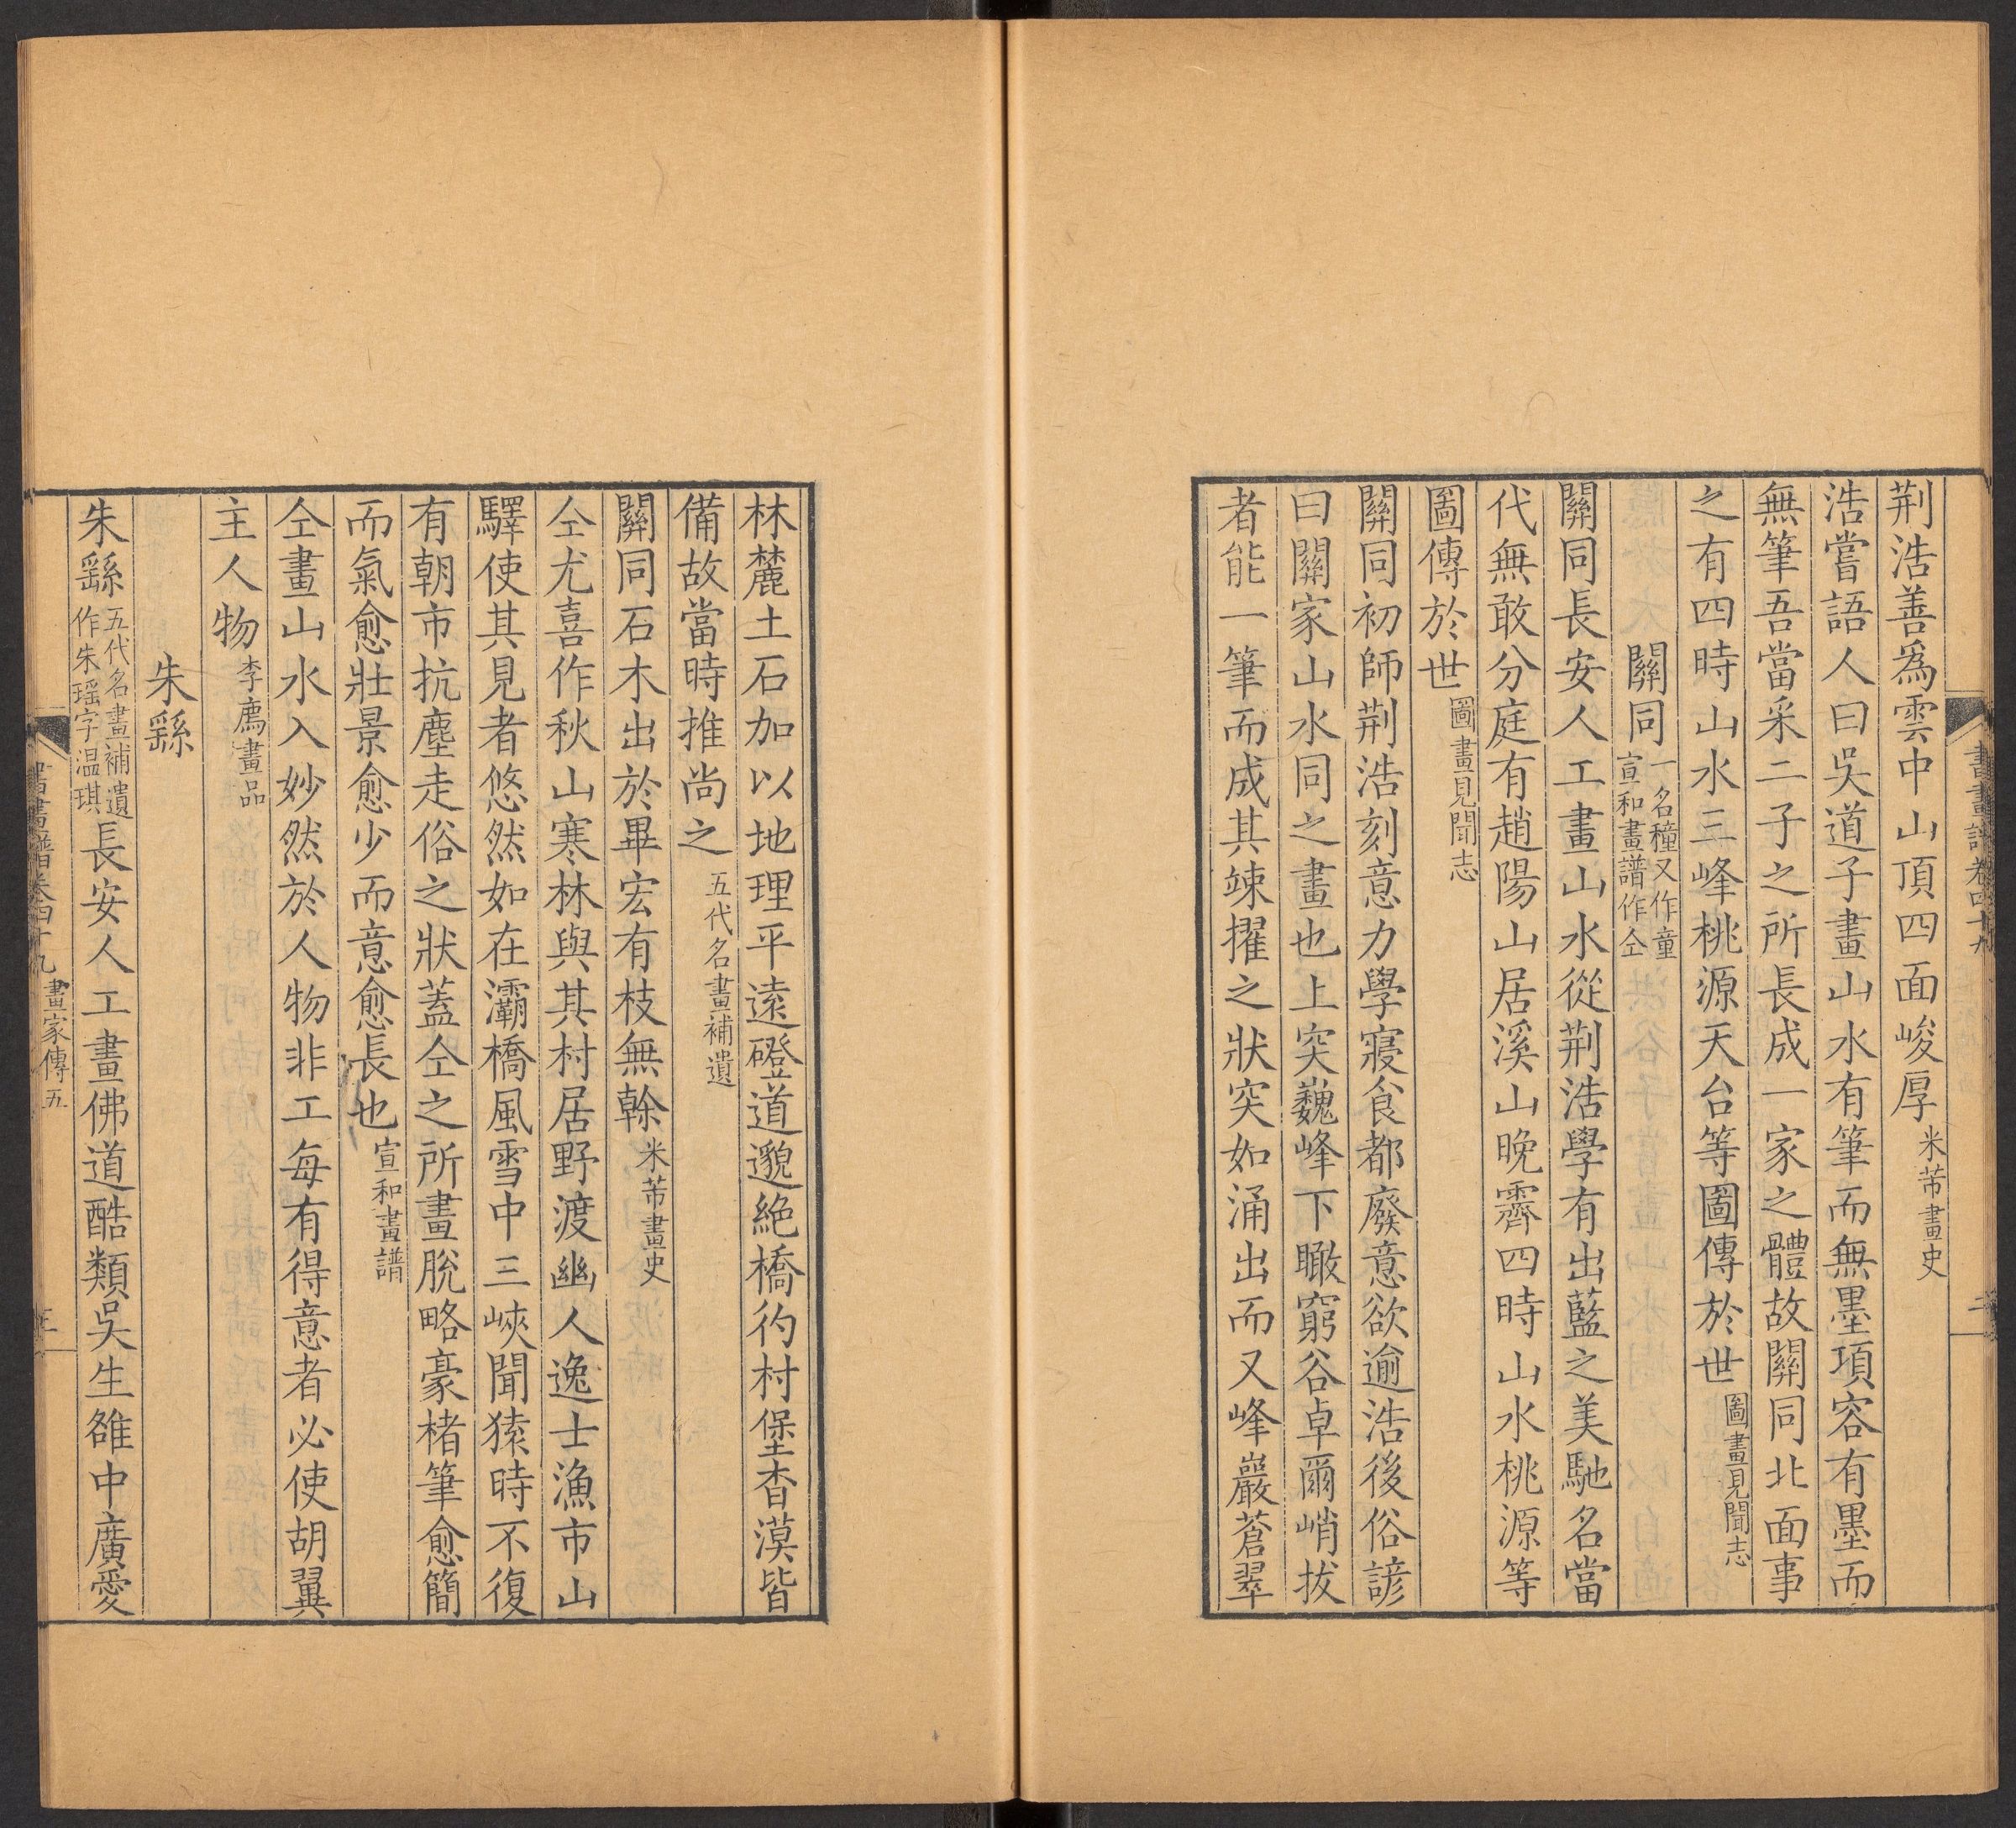 書畫譜卷四十九
二
荆浩善爲雲中山頂四面峻厚米芾畫史
浩嘗語人曰吳道子畫山水有筆而無墨項容有墨而
無筆吾當采二子之所長成一家之體故關同北面事
之有四時山水三峰桃源天台等圖傳於世圖畫見聞志
關同一名穜又作童宣和畫譜作仝
關同長安人工畫山水從荆浩學有出藍之美馳名當
代無敢分庭有趙陽山居溪山晚霽四時山水桃源等
圖傳於世圖畫見聞志
關同初師荆浩刻意力學寢食都廢意欲逾浩後俗諺
曰關家山水同之畫也上突巍峰下瞰窮谷卓爾峭拔
者能一筆而成其竦擢之狀突如涌出而又峰巖蒼翠
林麓土石加以地理平遠磴道邈絶橋彴村堡杳漠皆
備故當時推尚之五代名畫補遺
關同石木出於畢宏有枝無榦米芾畫史
仝尤喜作秋山寒林與其村居野渡幽人逸士漁市山
驛使其見者悠然如在灞橋風雪中三峽聞猿時不復
有朝市抗塵走俗之狀蓋仝之所畫脫略豪楮筆愈簡
而氣愈壯景愈少而意愈長也宣和畫譜
仝畫山水入妙然於人物非工每有得意者必使胡翼
主人物李廌畫品
朱繇
朱繇五代名畫補遺作朱瑶字温琪長安人工畫佛道酷類吳生雒中廣愛
書畫譜卷四十九 畫家傳五
三